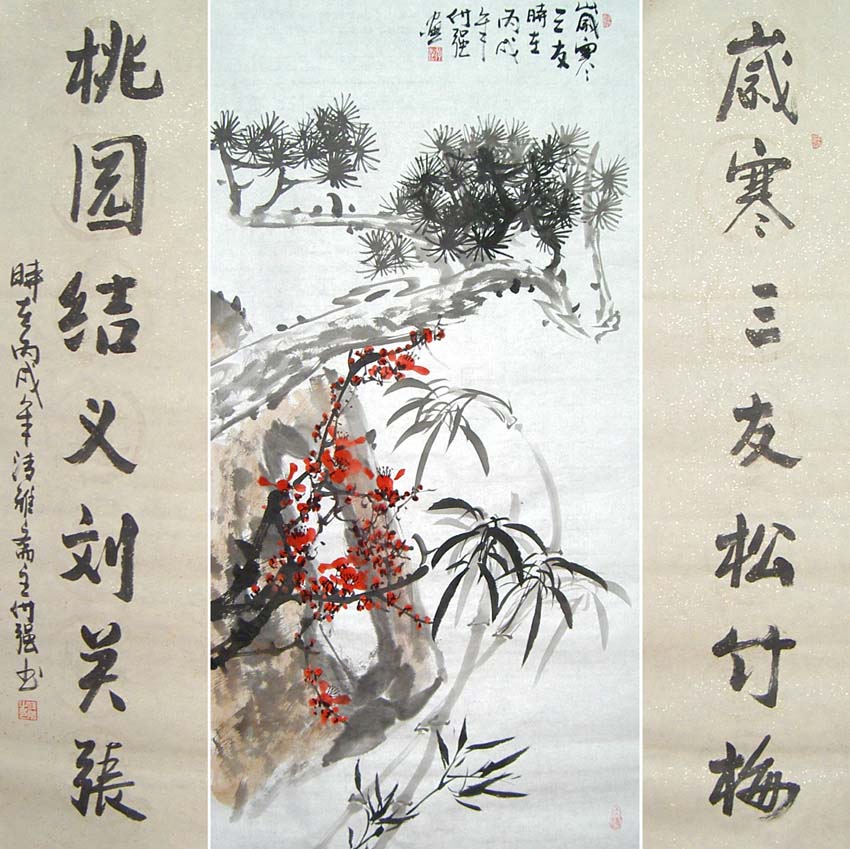 岁寒三友松竹梅
岁寒
三友
時在
丙戌
年
付强
畫
桃园结义刘关張
時在丙戌年清雅斋主付强书